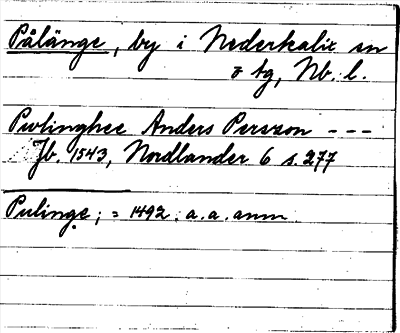 Pålänge, by i Nederkalix sn
o tg, Nb. l.
Pwlinghee Anders Perszon - - -
Jb. 1543, Nordlander 6 s. 277
Pulinge; = 1492. a. a. anm.